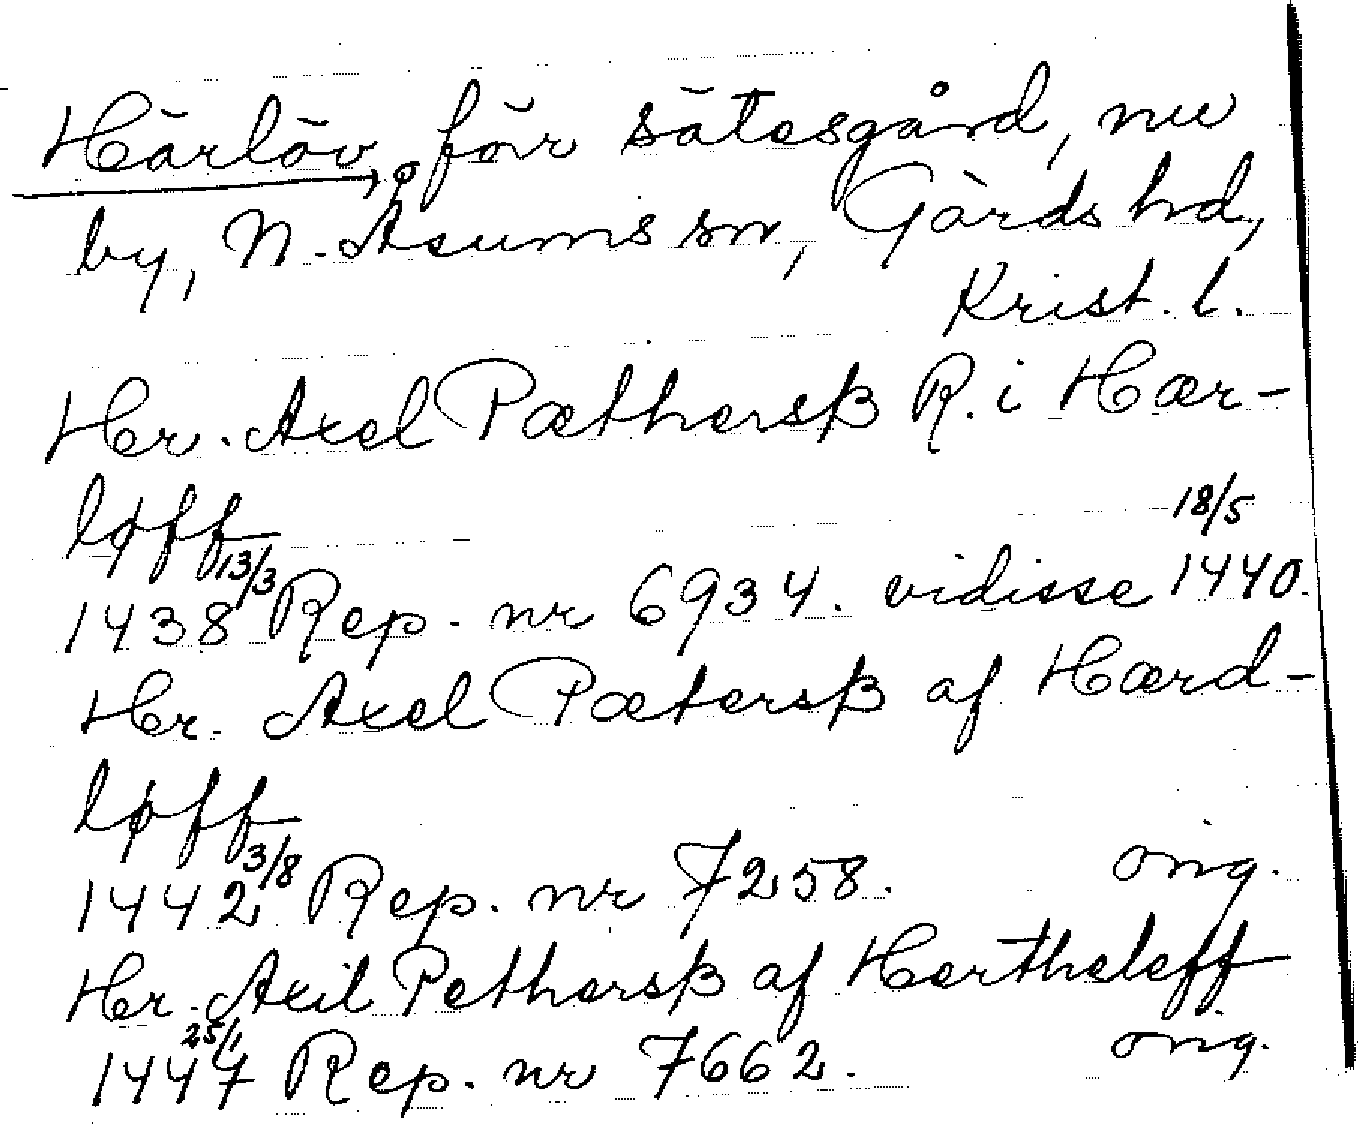 Härlöv, förr sätesgård, nu
by, N. Åsums sn, Gärds hd,
Krist. l.
Hr. Axel Pæthersß R. i Hær-
løff
13/3 18/5
1438 Rep. nr 6934. vidisse 1440.
Hr. Axel Pætersß af Hærd-
løff
3/8
1442 Rep. nr 7258. orig.
Hr. Axil Pethersß af Hertheleff
25/1
1447 Rep. nr 7662. orig.